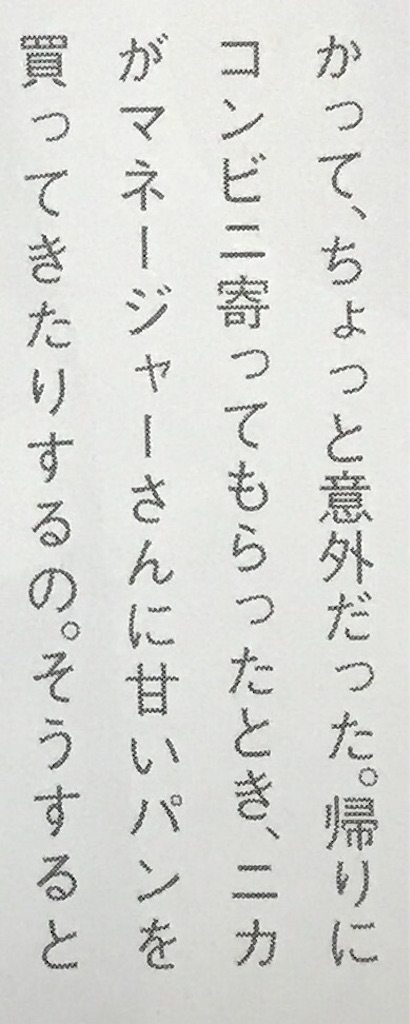 かって、ちょっと意外だった。帰りに
コンビニ寄ってもらったとき、ニカ
がマネージャーさんに甘いパンを
買ってきたりするの。そうすると